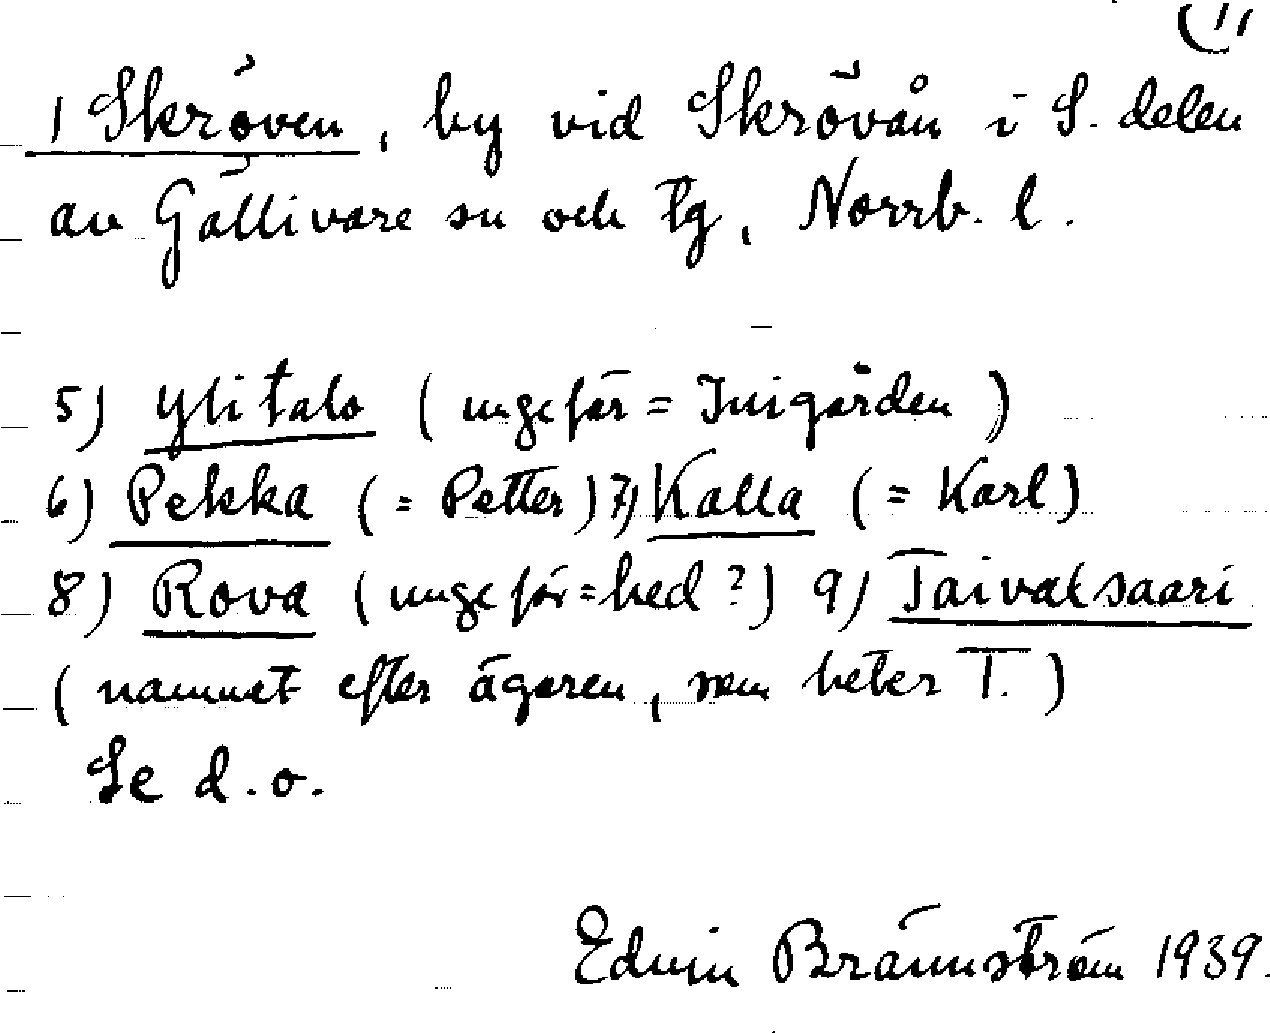 1 Skröven, by vid Skrövån i S. delen
av Gällivare sn och tg, Norrb. l.
5) Ylitalo (ungefär = Inigården)
6) Pekka (= Petter) 7) Kalla (= Karl)
8) Rova (ungefär = hed?) 9) Taivalsaari
(namnet efter ägaren, som heter T.)
Se d.o.
Edvin Brännström 1939.